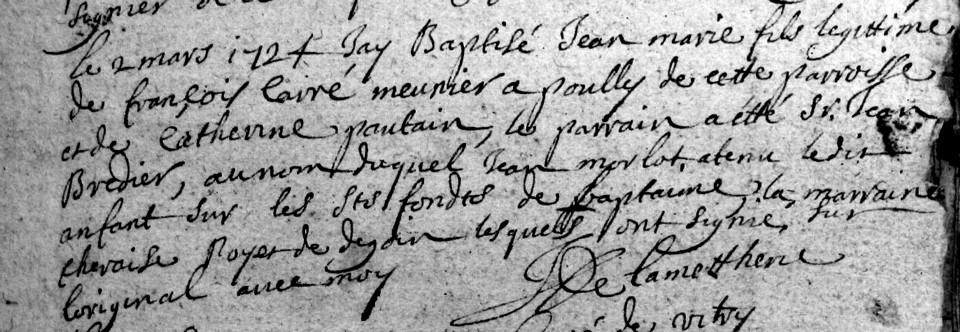 signer de
le 2 mars 1724 Jay Baptisé Jean marie fils legittime
de françois Carré meunier a poully de cette parroisse
et de Catherine pautain, le parrain a etté Sr. Jean
Bredier, au nom duquel Jean morlot, a tenu ledit
enfant sur les sts fondts de baptaime, la marraine
Royer de digoin lesquels ont signié, sur
loriginal avec moy Delamettherie
de vitry